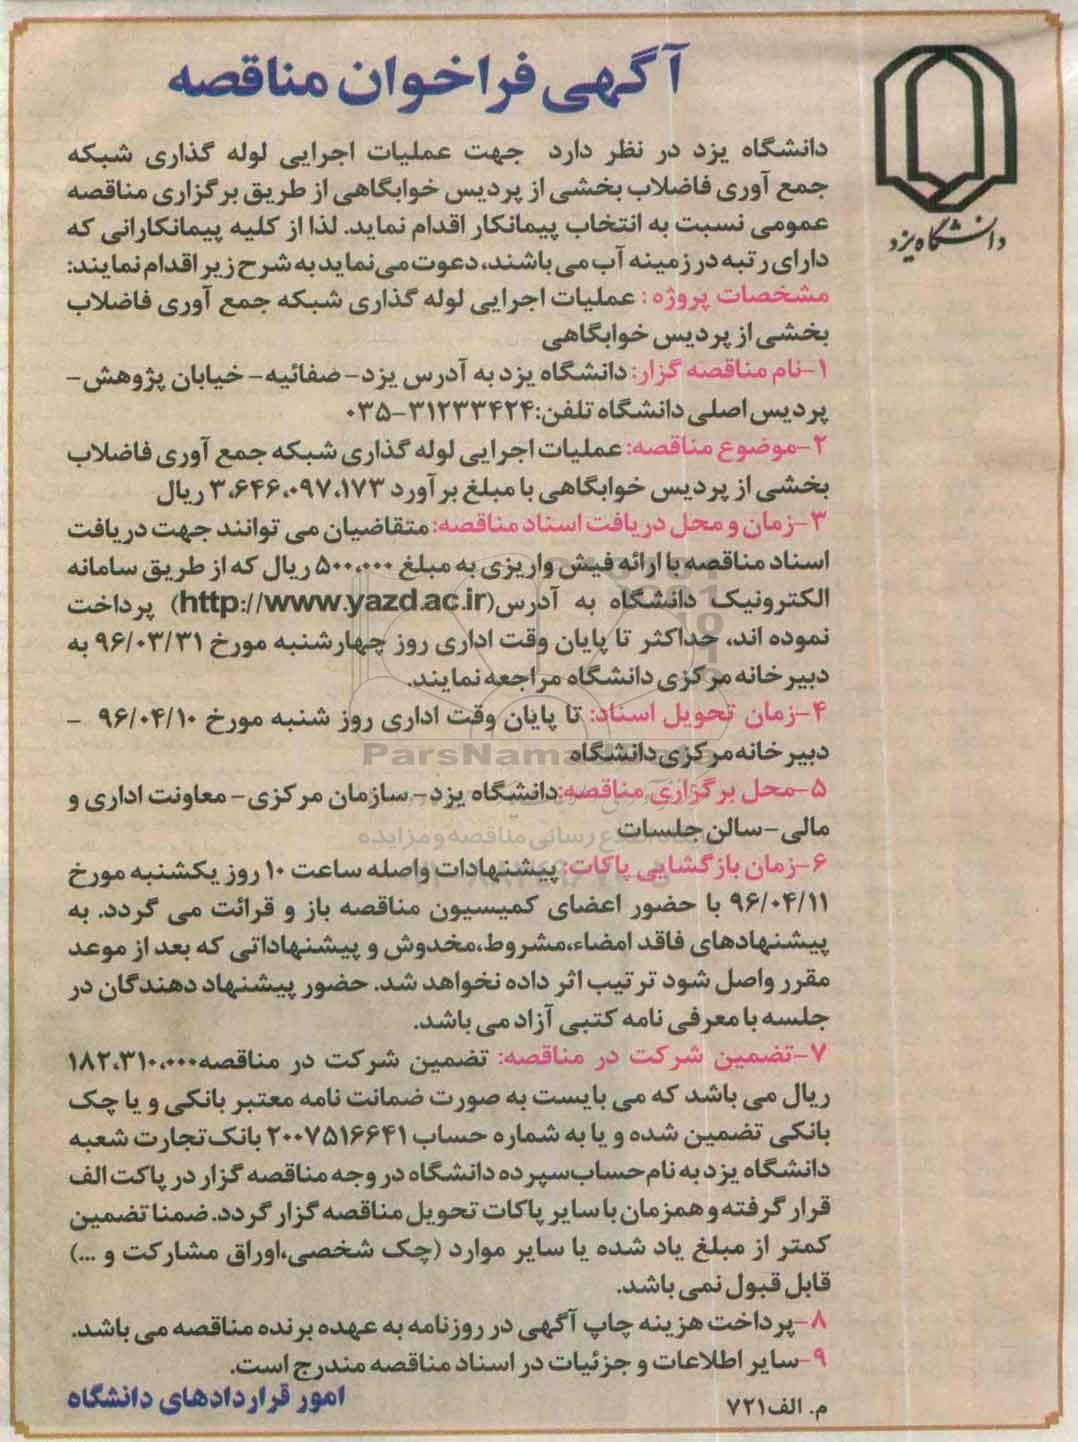 آگهی فراخوان مناقصه
دانشگاه یزد
دانشگاه یزد در نظر دارد جهت عملیات اجرایی لوله گذاری شبکه
جمع آوری فاضلاب بخشی از پردیس خوابگاهی از طریق برگزاری مناقصه
عمومی نسبت به انتخاب پیمانکار اقدام نماید. لذا از کلیه پیمانکارانی که
دارای رتبه در زمینه آب می باشند، دعوت می‌نماید به شرح زیر اقدام نمایند:
مشخصات پروژه : عملیات اجرایی لوله گذاری شبکه جمع آوری فاضلاب
بخشی از پردیس خوابگاهی
۱-نام مناقصه گزار: دانشگاه یزد به آدرس یزد- صفائیه- خیابان پژوهش-
پردیس اصلی دانشگاه تلفن:۳۱۲۳۳۴۲۴-۰۳۵
۲-موضوع مناقصه: عملیات اجرایی لوله گذاری شبکه جمع آوری فاضلاب
بخشی از پردیس خوابگاهی با مبلغ برآورد ۳،۶۴۶،۰۹۷،۱۷۳ ریال
۳-زمان و محل دریافت اسناد مناقصه: متقاضیان می توانند جهت دریافت
اسناد مناقصه با ارائه فیش واریزی به مبلغ ۵۰۰،۰۰۰ ریال که از طریق سامانه
الکترونیک دانشگاه به آدرس(http://www.yazd.ac.ir) پرداخت
نموده اند، حداکثر تا پایان وقت اداری روز چهارشنبه مورخ ۹۶/۰۳/۳۱ به
دبیرخانه مرکزی دانشگاه مراجعه نمایند.
۴-زمان تحویل اسناد: تا پایان وقت اداری روز شنبه مورخ ۹۶/۰۴/۱۰ -
دبیرخانه مرکزی دانشگاه
ParsNamadData
۵-محل برگزاری مناقصه:دانشگاه یزد- سازمان مرکزی- معاونت اداری و
مالی- سالن جلسات
پایگاه اطلاع رسانی مناقصه و مزایده
۶-زمان بازگشایی پاکات: پیشنهادات واصله ساعت ۱۰ روز یکشنبه مورخ
۹۶/۰۴/۱۱ با حضور اعضای کمیسیون مناقصه باز و قرائت می گردد. به
پیشنهادهای فاقد امضاء،مشروط،مخدوش و پیشنهاداتی که بعد از موعد
مقرر واصل شود ترتیب اثر داده نخواهد شد. حضور پیشنهاد دهندگان در
جلسه با معرفی نامه کتبی آزاد می باشد.
۷-تضمین شرکت در مناقصه: تضمین شرکت در مناقصه۱۸۲،۳۱۰،۰۰۰
ریال می باشد که می بایست به صورت ضمانت نامه معتبر بانکی و یا چک
بانکی تضمین شده و یا به شماره حساب ۲۰۰۷۵۱۶۶۴۱ بانک تجارت شعبه
دانشگاه یزد به نام حساب سپرده دانشگاه در وجه مناقصه گزار در پاکت الف
قرار گرفته و همزمان با سایر پاکات تحویل مناقصه گزار گردد. ضمنا تضمین
کمتر از مبلغ یاد شده یا سایر موارد (چک شخصی،اوراق مشارکت و ...)
قابل قبول نمی باشد.
۸-پرداخت هزینه چاپ آگهی در روزنامه به عهده برنده مناقصه می باشد.
۹-سایر اطلاعات و جزئیات در اسناد مناقصه مندرج است.
م. الف۷۲۱
امور قراردادهای دانشگاه